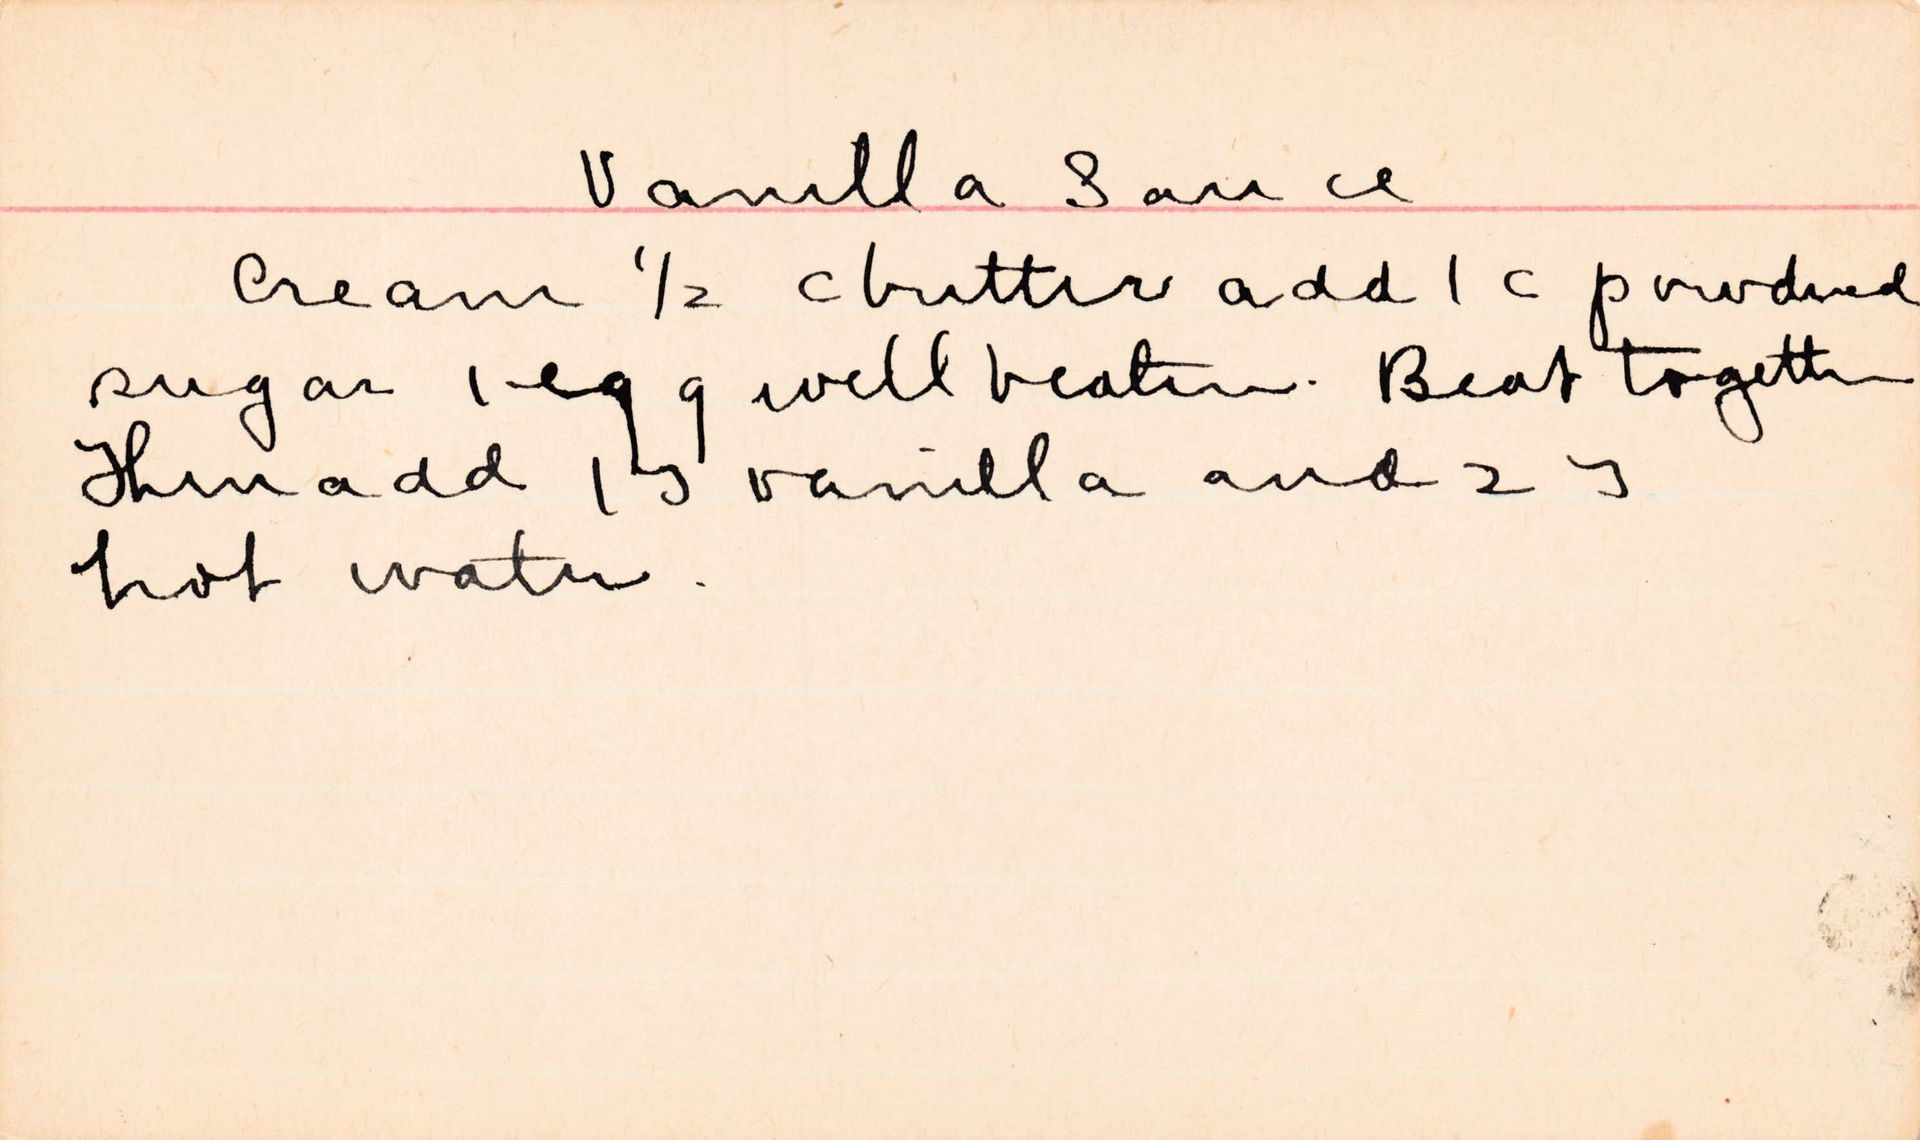 Vanilla Sauce
Cream 1/2 c butter add 1 c powdered
sugar 1 egg well beaten. Beat together
Then add 1 s vanilla and 2 s
hot water.